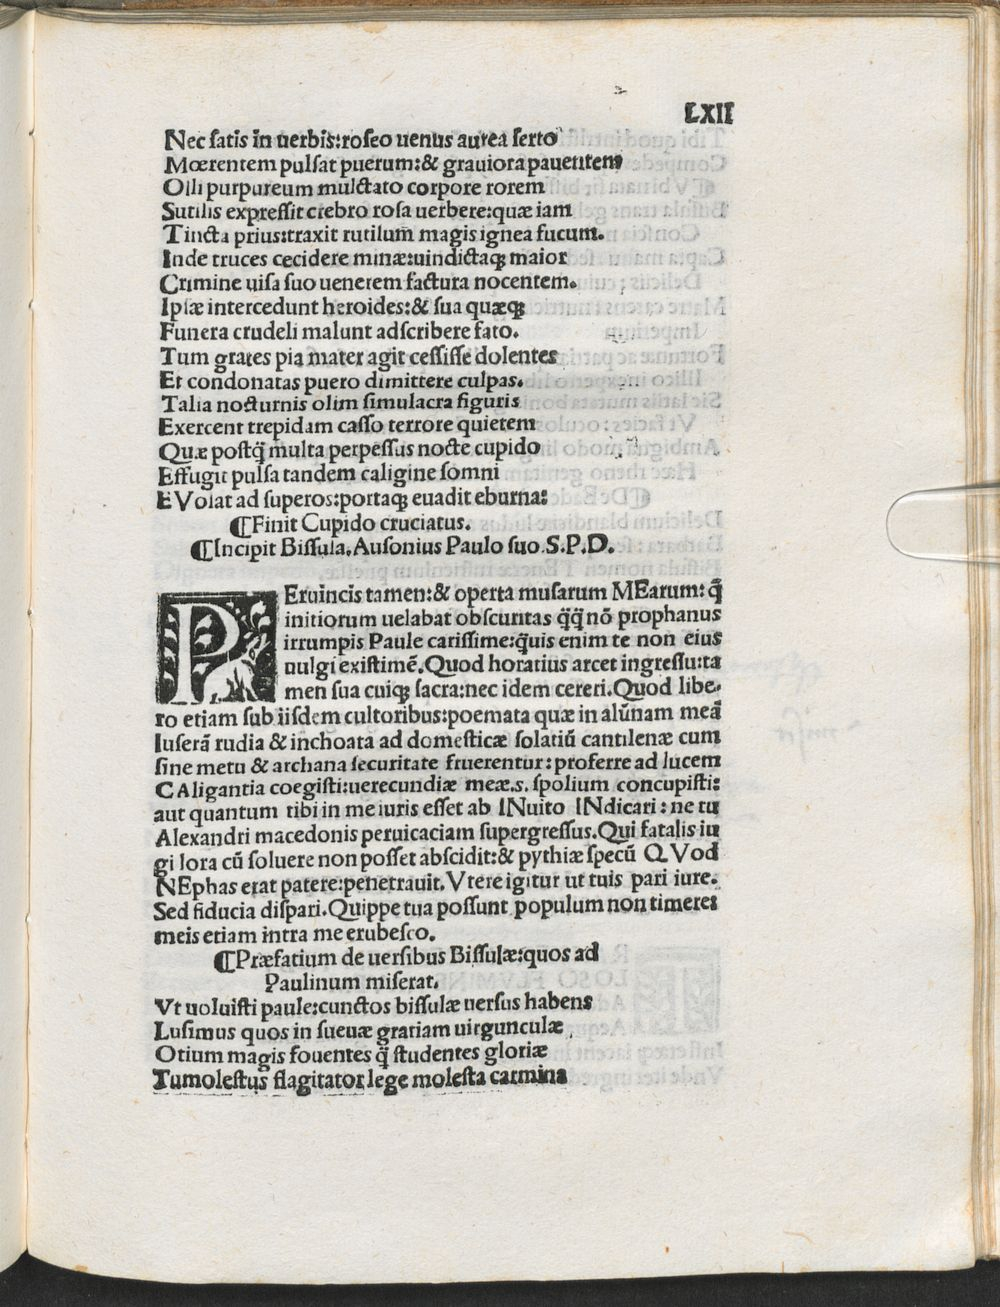 LXII
Nec satis in uerbis:roseo uenus aurea serto
Mœrentem pulsat puerum:& grauiora pauentem
Olli purpureum mulctato corpore rorem
Sutilis expressit crebro rosa uerbere:quæ iam
Tincta prius:traxit rutilum magis ignea fucum.
Inde truces cecidere minæ:uindictaq; maior
Crimine uisa suo uenerem factura nocentem.
Ipsæ intercedunt heroides:& sua quæq;
Funera crudeli malunt adscribere fato.
Tum grates pia mater agit cessisse dolentes
Et condonatas puero dimittere culpas.
Talia nocturnis olim simulacra figuris
Exercent trepidam casso terrore quietem
Quæ postq̃ multa perpessus nocte cupido
Effugit pulsa tandem caligine somni
EVolat ad superos:portaq; euadit eburna:
¶Finit Cupido cruciatus.
¶Incipit Bissula.Ausonius Paulo suo.S.P.D.
PEruincis tamen:& operta musarum MEarum:q̃
initiorum uelabat obscuritas q̃q̃ nõ prophanus
irrumpis Paule carissime:q̃uis enim te non eius
uulgi existimẽ.Quod horatius arcet ingressu:ta
men sua cuiq; sacra:nec idem cereri.Quod libe-
ro etiam sub iisdem cultoribus:poemata quæ in alũnam meã
luserã rudia & inchoata ad domesticæ solatiũ cantilenæ cum
sine metu & archana securitate fruerentur:proferre ad lucem
CAligantia coegisti:uerecundiæ meæ.s. spolium concupisti:
aut quantum tibi in me iuris esset ab INuito INdicari:ne tu
Alexandri macedonis peruicaciam supergressus.Qui fatalis iu
gi lora cũ soluere non posset abscidit:& pythiæ specũ QVod
NEphas erat patere:penetrauit.Vtere igitur ut tuis pari iure.
Sed fiducia dispari.Quippe tua possunt populum non timere:
meis etiam intra me erubesco.
¶Præfatium de uersibus Bissulæ:quos ad
Paulinum miserat.
Vt uoluisti paule:cunctos bissulæ uersus habens
Lusimus quos in sueuæ gratiam uirgunculæ
Otium magis fouentes q̃ studentes gloriæ
Tumolestus flagitator lege molesta carmina